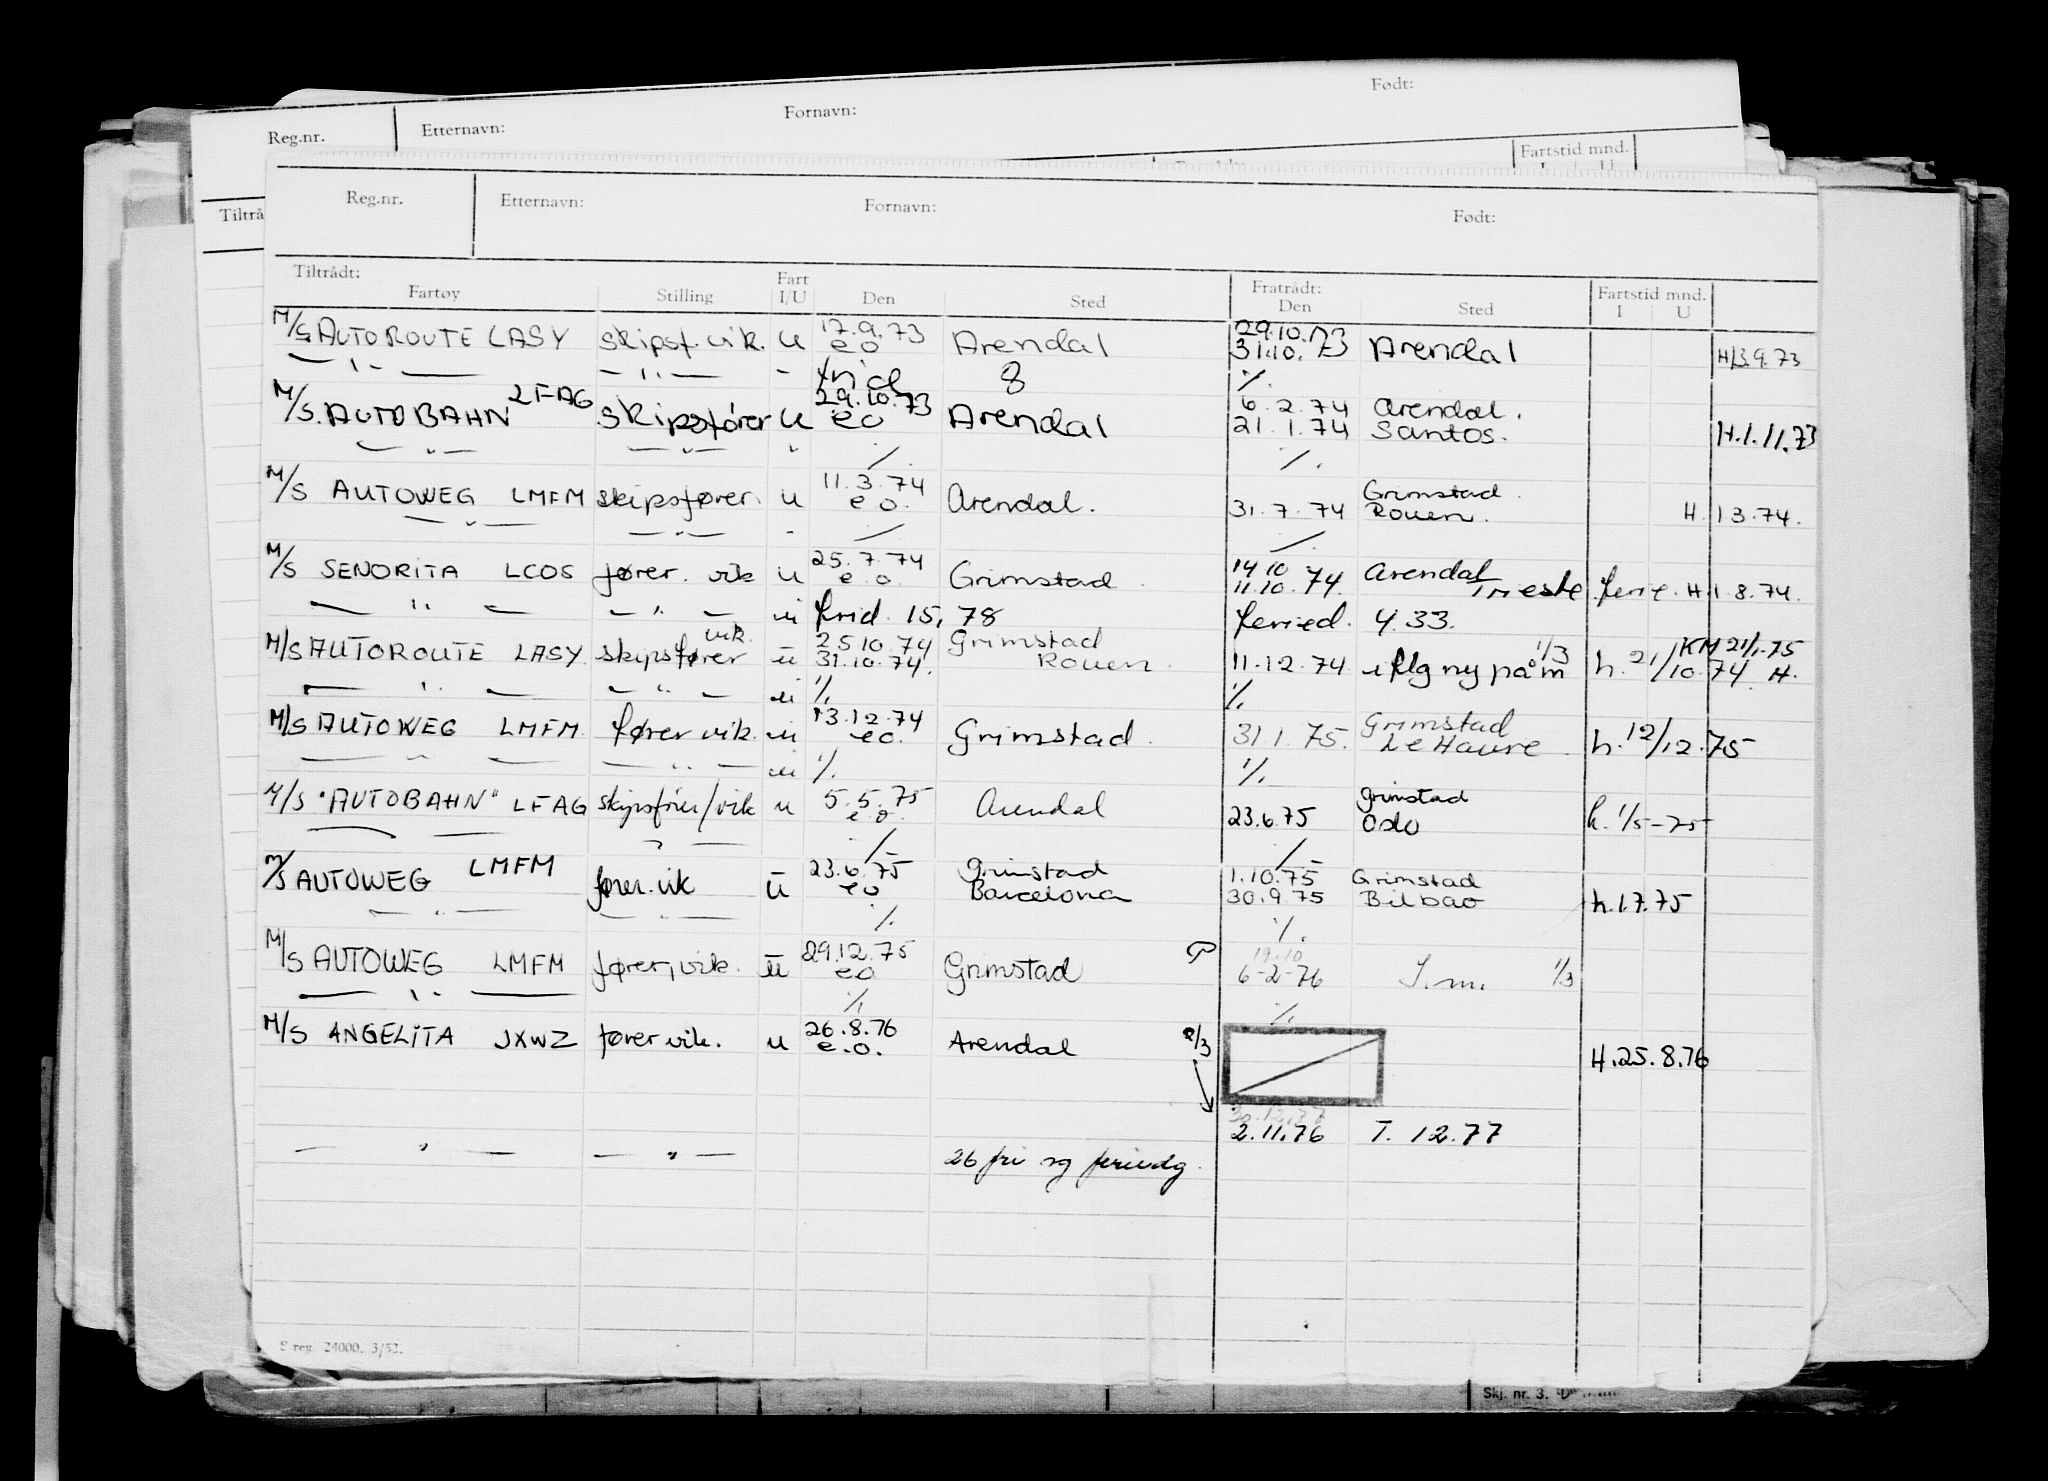 Reg.nr. Etternavn: Fornavn: Født:
Fartstid mnd.
I U
Tiltrå
Reg.nr. Etternavn: Fornavn: Født:
Tiltrådt: Fart Fratrådt: Fartstid mnd.
Fartøy Stilling I/U Den Sted Den Sted I U
M/S AUTOROUTE LASY skipsf. vik. U 17.9.73 Arendal 29.10.73
e o 31.10.73 Arendal H13.9.73
— " — — " — - frid 8 %.
M/S. AUTOBAHN LFAG skipsfører U 29.10.73 Arendal 6.2.74 Arendal.
eo 21.1.74 Santos. H.1.11.73
— " — — " — " /. /.
M/S AUTOWEG LMFM skipsfører. u 11.3.74 Arendal. Grimstad.
e o. 31.7.74 Rouen. H.1 3.74.
— " — — " — - / /.
M/S SENORITA LCOS fører. vik u 25.7.74 Grimstad 14 10 Arendal
e.o. 11.10.74. Trieste ferie. H.1.8.74.
— " — — " — u frid. 15,78 feried. 4.33.
M/S AUTOROUTE LASY skipsfører vik. u 25 10.74 Grimstad 1/3 KM 21/1-75
31.10.74. Rouen. 11.12.74 iflg ny påm h. 21/10.74 H.
— " — — " — u %. %.
M/S AUTOWEG LMFM. fører vik. u 13.12.74 Grimstad. Grimstad
eo. 31 1.75. Le Havre h. 12/12.75
— " — — " — u %. %.
M/S "AUTOBAHN" LFAG skipsfører/vik u 5.5.75 Arendal Grimstad
e.o. 23.6.75 Oslo h. 1/5-75
— — " — /. /
M/S AUTOWEG LMFM fører. vik u 23.6.75 Grimstad 1.10.75 Grimstad
eo Barcelona 30.9.75 Bilbao h.1.7.75
— " — — " — %. %.
M/S AUTOWEG LMFM fører, vik. u 29.12.75 Grimstad 19.10
eo. 6-2-76 S.m. 1/3
— " — %. %.
M/S ANGELITA JXWZ fører vik. u 26.8.76 Arendal 2/3
e.o. H.25.8.76
30.12.77
2.11.76 T. 12.77
— " — — " — 26 fri og feriedg.
S reg. 24000. 3/52.
Skj. nr. 3.